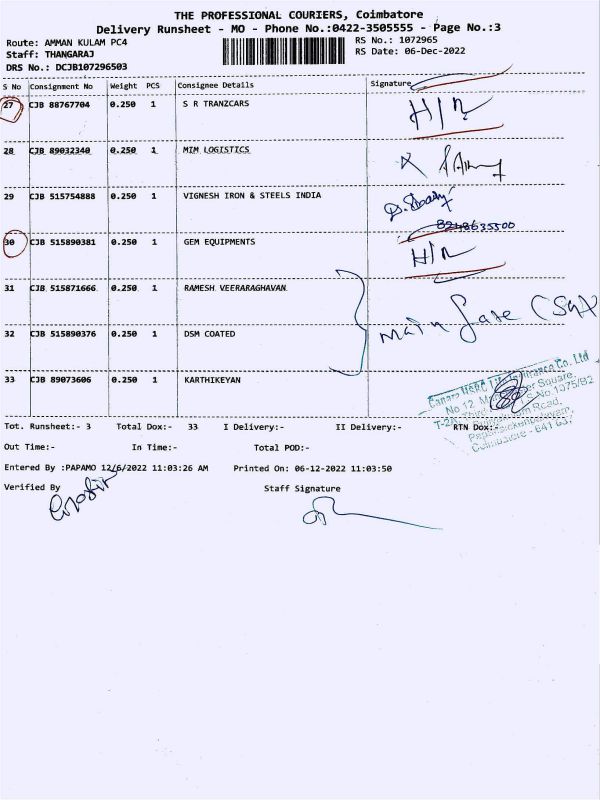 THE PROFESSIONAL COURIERS, Coimbatore
Delivery Runsheet - MO - Phone No.:0422-3505555 - Page No.:3
Route: AMMAN KULAM PC4
RS No.: 1072965
Staff: THANGARAJ
RS Date: 06-Dec-2022
DRS No.: DCJB107296503
S No Consignment No Weight PCS Consignee Details Signature
27 CJB 88767704 0.250 1 S R TRANZCARS H/R
28 CJB 89032340 0.250 1 MIM LOGISTICS
29 CJB 515754888 0.250 1 VIGNESH IRON & STEELS INDIA
8248635500
30 CJB 515890381 0.250 1 GEM EQUIPMENTS H/R
31 CJB 515871666 0.250 1 RAMESH VEERARAGHAVAN
main Gate
32 CJB 515890376 0.250 1 DSM COATED
33 CJB 89073606 0.250 1 KARTHIKEYAN
Canara HSBC Life Insurance Co. Ltd
Square,
Road,
Coimbatore - 641 037
Tot. Runsheet:- 3 Total Dox:- 33 I Delivery:- II Delivery:- RTN Dox:-
Out Time:- In Time:- Total POD:-
Entered By :PAPAMO 12/6/2022 11:03:26 AM Printed On: 06-12-2022 11:03:50
Verified By Staff Signature